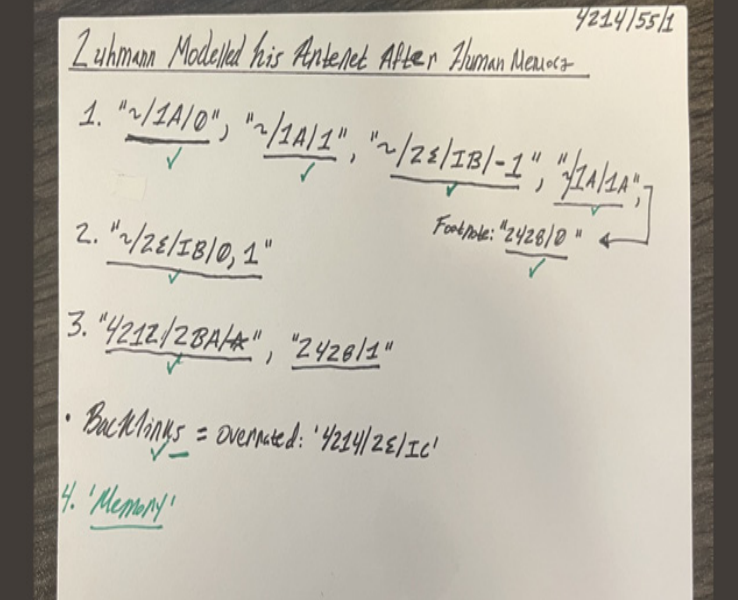 4214/55/1
Luhmann Modelled his Antenet After Human Memory
1. "~/1A/0", "~/1A/1", "~/2E/1B/-1", "~/1A/1A",
Footnote: "2428/0"
2. "~/2E/1B/0,1"
3. "4212/2BA/*", "2428/1"
• Backlinks = overrated: '4214/2E/1C'
4. 'Memory'